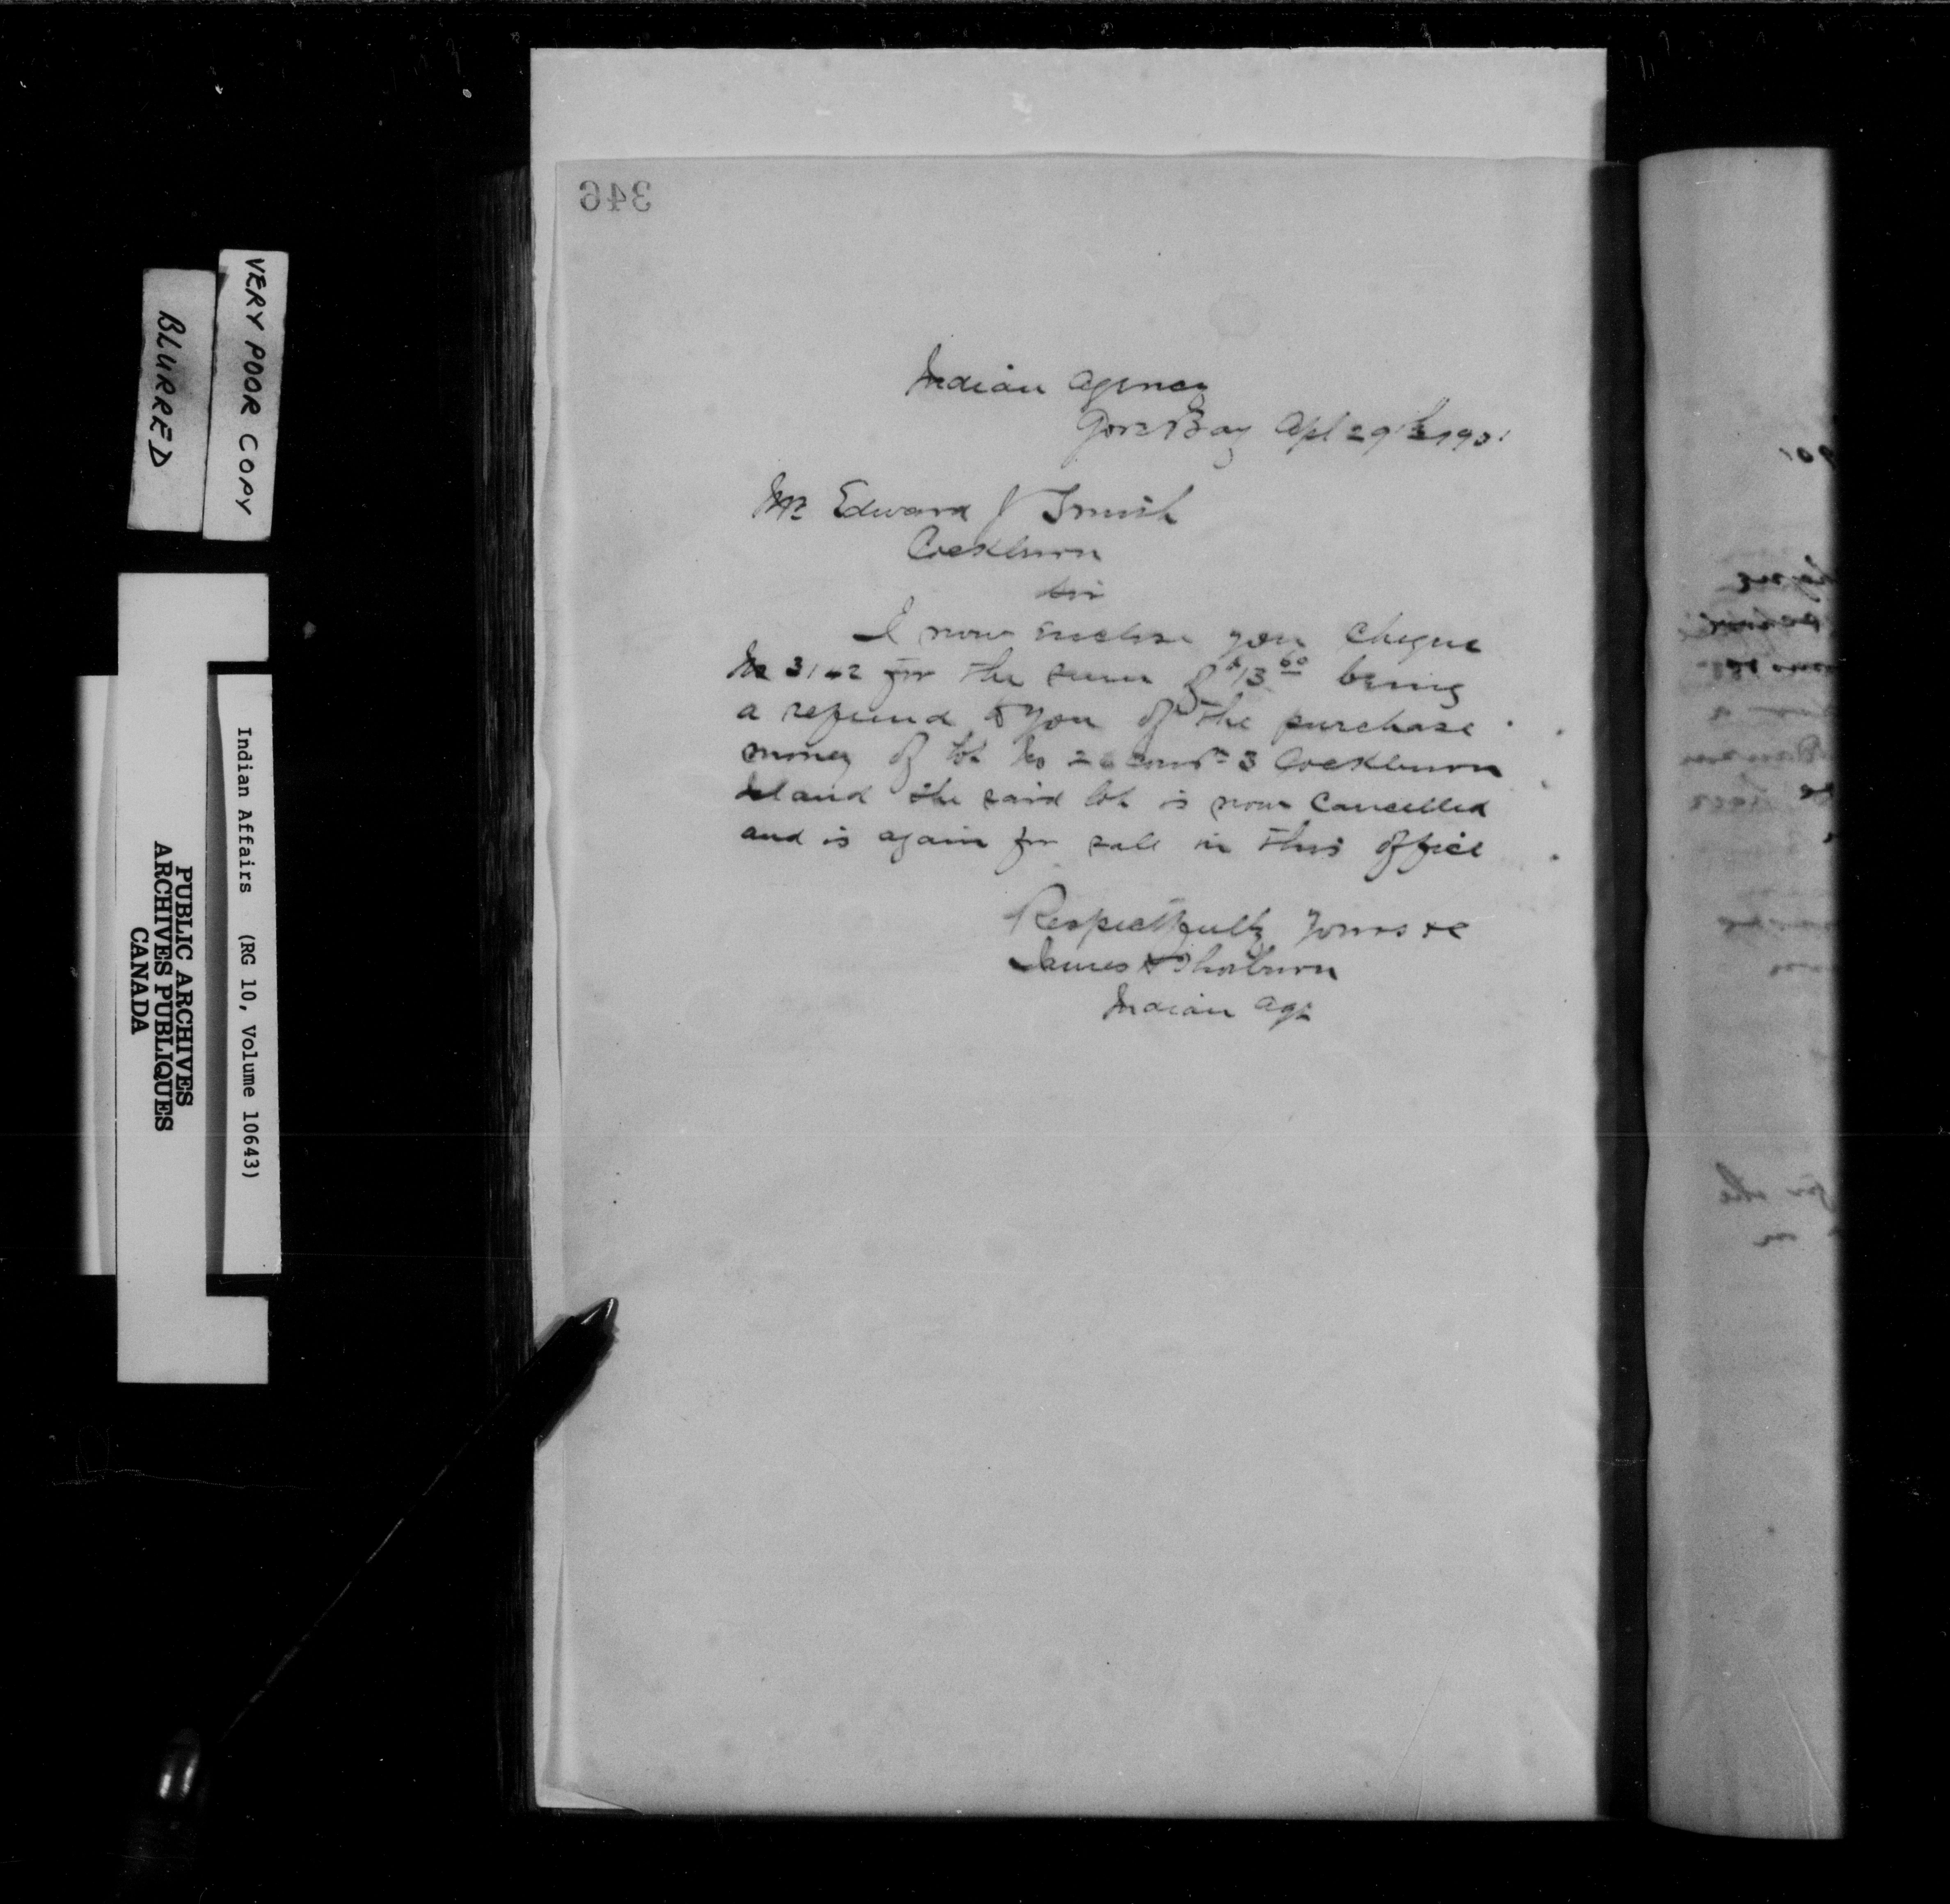 346
Indian Agency
Gore Bay Apl 29th 1901
Mr Edward J Smith
Cockburn
Sir
I now enclose you Cheque
No 3142 for the sum of $13 60 being
a refund to you of the purchase
money of lot No 26 con 3 Cockburn
Island the said lot is now Cancelled
and is again for sale in this office
Respectfully Yours &c
James H Thorburn
Indian Agt
VERY POOR COPY
BLURRED
Indian Affairs (RG 10, Volume 10643)
PUBLIC ARCHIVES
ARCHIVES PUBLIQUES
CANADA
for the